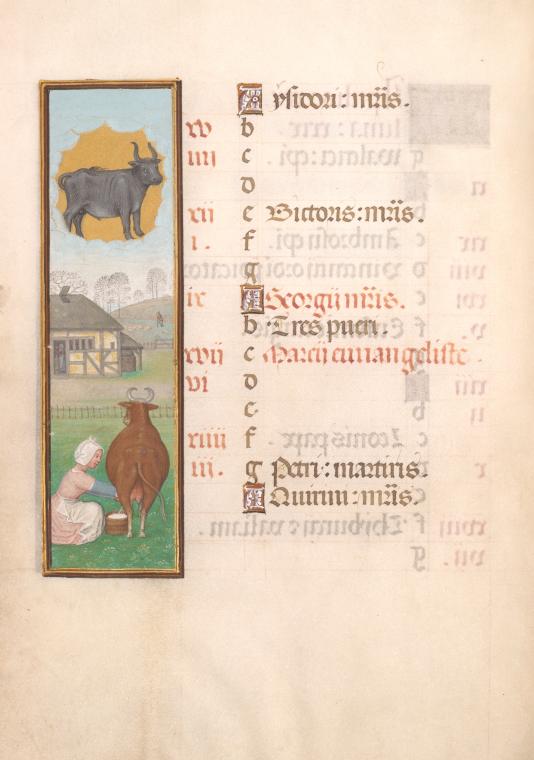 A ysidori: mr̃is.
xv b
iiii c
d
xii e Victoris: mr̃is.
i. f
g
ix A Georgii mr̃is.
b Tres pueri.
xvii c Marci euuangeliste
vi d
e
xiiii f
iii. g Petri: martiris.
A Quirini: mr̃is.